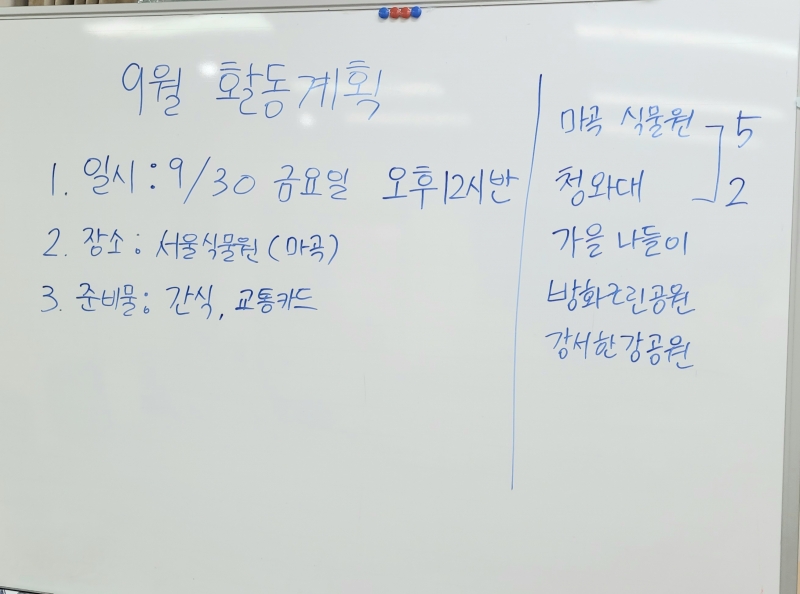 9월 활동계획
1. 일시 : 9/30 금요일 오후12시반
2. 장소 : 서울식물원 (마곡)
3. 준비물 : 간식, 교통카드
마곡 식물원 5
청와대 2
가을 나들이
방화근린공원
강서한강공원